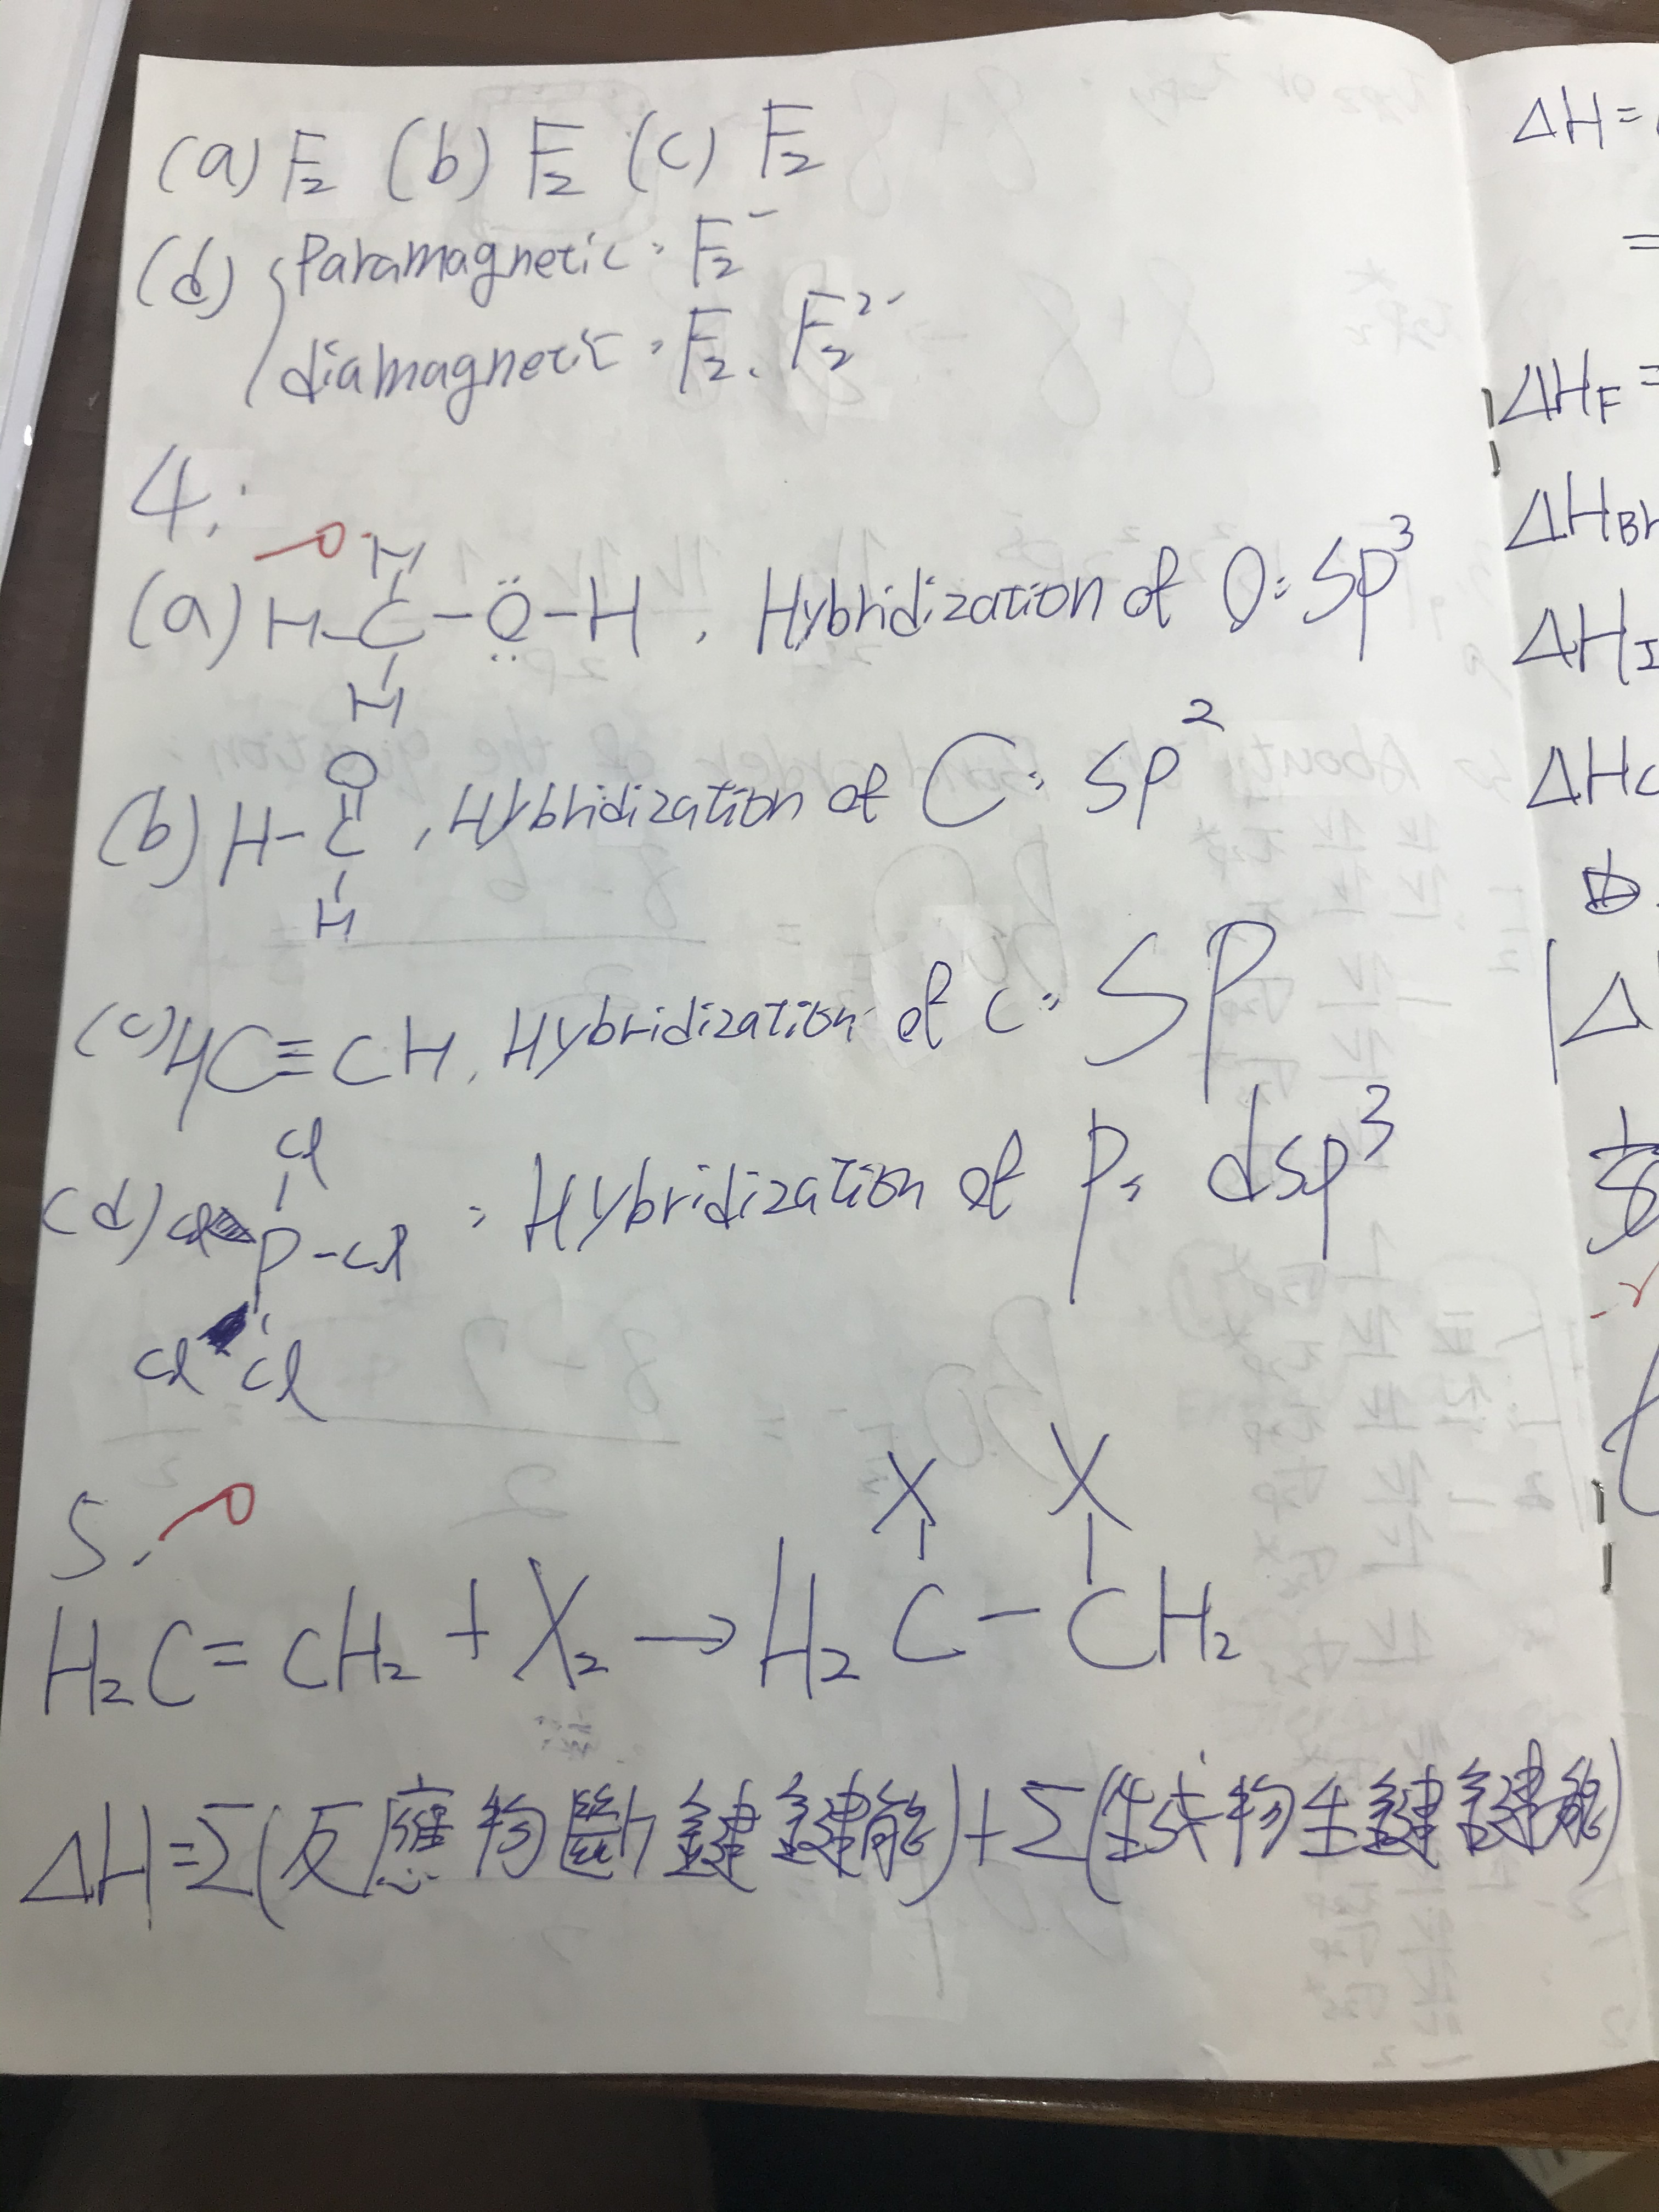 (a) F₂ (b) F₂ (c) F₂
(d) { Paramagnetic: F₂⁻
diamagnetic: F₂、F₂²⁻
4.
H
(a) H-C-Ö-H , Hybridization of O: SP³
H
O
(b) H-C , Hybridization of C: SP²
H
(c) HC≡CH, Hybridization of C: SP
Cl
(d) Cl P-Cl : Hybridization of P: dsp³
Cl Cl
5.
X X
H₂C=CH₂ + X₂ → H₂C-CH₂
ΔH=Σ(反應物斷鍵鍵能)+Σ(生成物生鍵鍵能)
ΔH=
=
ΔHF=
ΔHBr
ΔHI